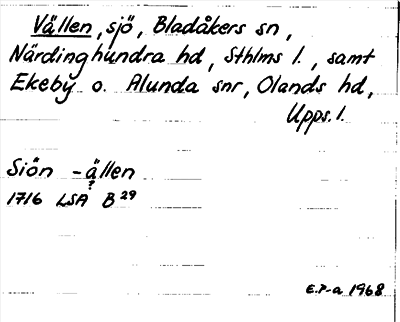 Vällen, sjö, Bladåkers sn,
Närdinghundra hd, Sthlms l., samt
Ekeby o. Alunda snr, Olands hd,
Upps. l.
Siön - ällen
?
1716 LSA B 29
E.P-a 1968